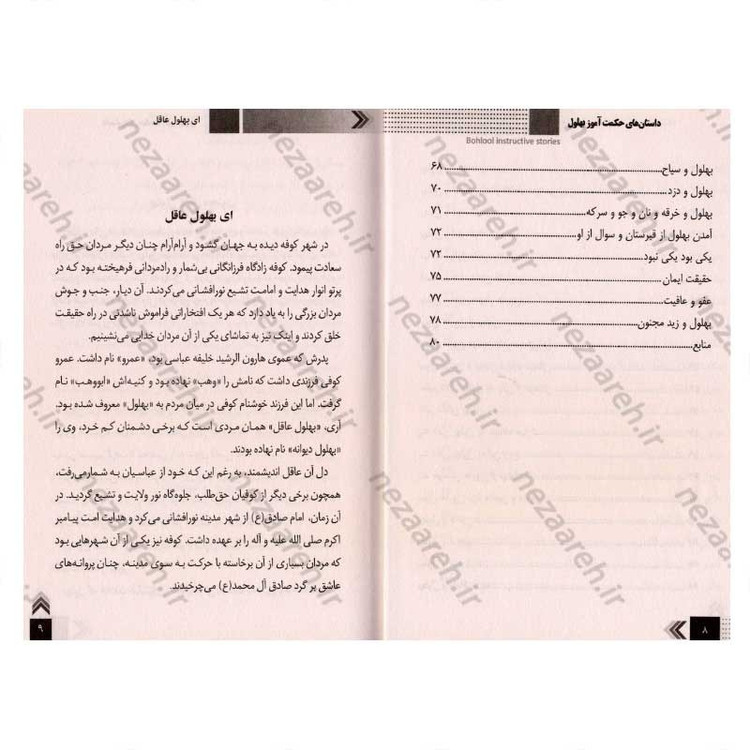 داستان‌های حکمت آموز بهلول
Bohlool instructive stories
بهلول و سیاح ۶۸
بهلول و دزد ۷۰
بهلول و خرقه و نان و جو و سرکه ۷۱
آمدن بهلول از قبرستان و سوال از او ۷۲
یکی بود یکی نبود ۷۳
حقیقت ایمان ۷۵
عفو و عاقبت ۷۷
بهلول و زید مجنون ۷۸
منابع ۸۰
۸
ای بهلول عاقل
ای بهلول عاقل
در شهر کوفه دیده به جهان گشود و آرام‌آرام چنان دیگر مردان حق راه
سعادت پیمود. کوفه زادگاه فرزانگانی بی‌شمار و رادمردانی فرهیخته بود که در
پرتو انوار هدایت و امامت تشیع نورافشانی می‌کردند. آن دیار، جنب و جوش
مردان بزرگی را به یاد دارد که هر یک افتخاراتی فراموش ناشدنی در راه حقیقت
خلق کردند و اینک نیز به تماشای یکی از آن مردان خدایی می‌نشینیم.
پدرش که عموی هارون الرشید خلیفه عباسی بود، «عمرو» نام داشت. عمرو
کوفی فرزندی داشت که نامش را «وهب» نهاده بود و کنیه‌اش «ابووهب» نام
گرفت. اما این فرزند خوشنام کوفی در میان مردم به «بهلول» معروف شده بود.
آری، «بهلول عاقل» همان مردی است که برخی دشمنان کم خرد، وی را
«بهلول دیوانه» نام نهاده بودند.
دل آن عاقل اندیشمند، به رغم این که خود از عباسیان به شمارمی‌رفت،
همچون برخی دیگر از کوفیان حق‌طلب، جلوه‌گاه نور ولایت و تشیع گردید. در
آن زمان، امام صادق(ع) از شهر مدینه نورافشانی می‌کرد و هدایت امت پیامبر
اکرم صلی الله علیه و آله را بر عهده داشت. کوفه نیز یکی از آن شهرهایی بود
که مردان بسیاری از آن برخاسته با حرکت به سوی مدینه، چنان پروانه‌های
عاشق بر گرد صادق آل محمد(ع) می‌چرخیدند.
۹
nezaareh.ir